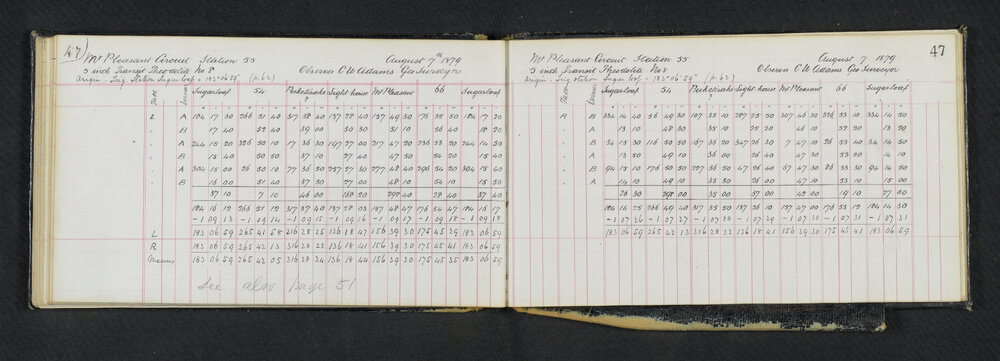 47)
Mt Pleasant Circuit Station 55 August 7th 1879
5 inch Transit Theodolite No 8 Observer C W Adams Geo Surveyor
Origin = Trig. Station Sugarloaf = 183° 06' 59" (p. 62)
Face Vernier Sugarloaf 54 Puketiraki ? Light house Mt Pleasant 66 Sugarloaf
L A 184 17 30 266 51 30 317 38 40 137 28 40 157 49 30 176 55 50 184 17 20
B 17 40 52 40 39 00 30 30 51 10 56 40 18 20
A 244 15 20 326 50 10 17 36 30 197 27 00 217 47 20 236 53 20 244 14 50
B 15 40 50 50 37 10 27 40 47 50 54 20 15 40
A 304 15 00 26 50 10 77 36 30 257 27 30 277 48 40 296 54 20 304 15 40
B 16 00 51 40 37 50 27 00 48 10 54 10 15 50
37 10 7 10 46 00 168 20 292 40 28 40 37 40
184 16 12 266 51 12 317 37 40 137 28 03 157 48 47 176 54 47 184 16 17
-1 09 13 -1 09 14 -1 09 15 -1 09 16 -1 09 17 -1 09 18 -1 09 18
L 183 06 59 265 41 58 316 28 25 136 18 47 156 39 30 175 45 29 183 06 59
R 183 06 59 265 42 13 316 28 22 136 18 41 156 39 30 175 45 41 183 06 59
Means 183 06 59 265 42 05 316 28 24 136 18 44 156 39 30 175 45 35 183 06 59
See also page 51
47
Mt Pleasant Circuit Station 55 August 7 1879
5 inch Transit Theodolite No 8 Observer C W Adams Geo Surveyor
Origin = Trig Station Sugar loaf = 183° 06' 59" (p. 62)
Face Vernier Sugarloaf 54 Puketiraki ? Light house Mt Pleasant 66 Sugarloaf
R B 334 14 40 56 49 30 107 35 10 287 25 50 307 46 30 326 53 10 334 14 50
A 13 10 48 30 35 10 25 20 46 10 52 20 13 20
B 34 15 30 116 50 20 167 36 20 347 26 30 7 47 10 26 53 40 34 15 30
A 13 50 49 10 36 00 26 40 47 30 53 20 14 10
B 94 15 10 176 50 227 36 30 47 26 50 67 48 10 86 54 30 94 14 50
A 14 10 49 10 35 30 26 00 47 10 53 10 15 00
26 30 298 00 35 00 37 00 42 00 19 10 27 00
184 14 25 266 49 40 317 35 50 137 26 10 157 47 00 176 53 12 184 14 30
-1 07 26 -1 07 27 -1 07 28 -1 07 29 -1 07 30 -1 07 31 -1 07 31
183 06 59 265 42 13 316 28 22 136 18 41 156 39 30 175 45 41 183 06 59